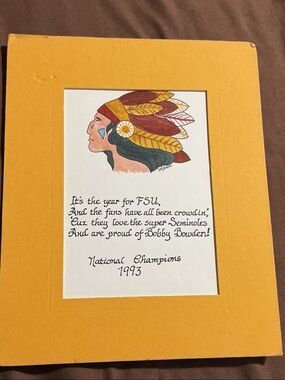 It's the year for FSU,
And the fans have all been crowdin',
'Cuz they love the super Seminoles
And are proud of Bobby Bowden!
National Champions
1993